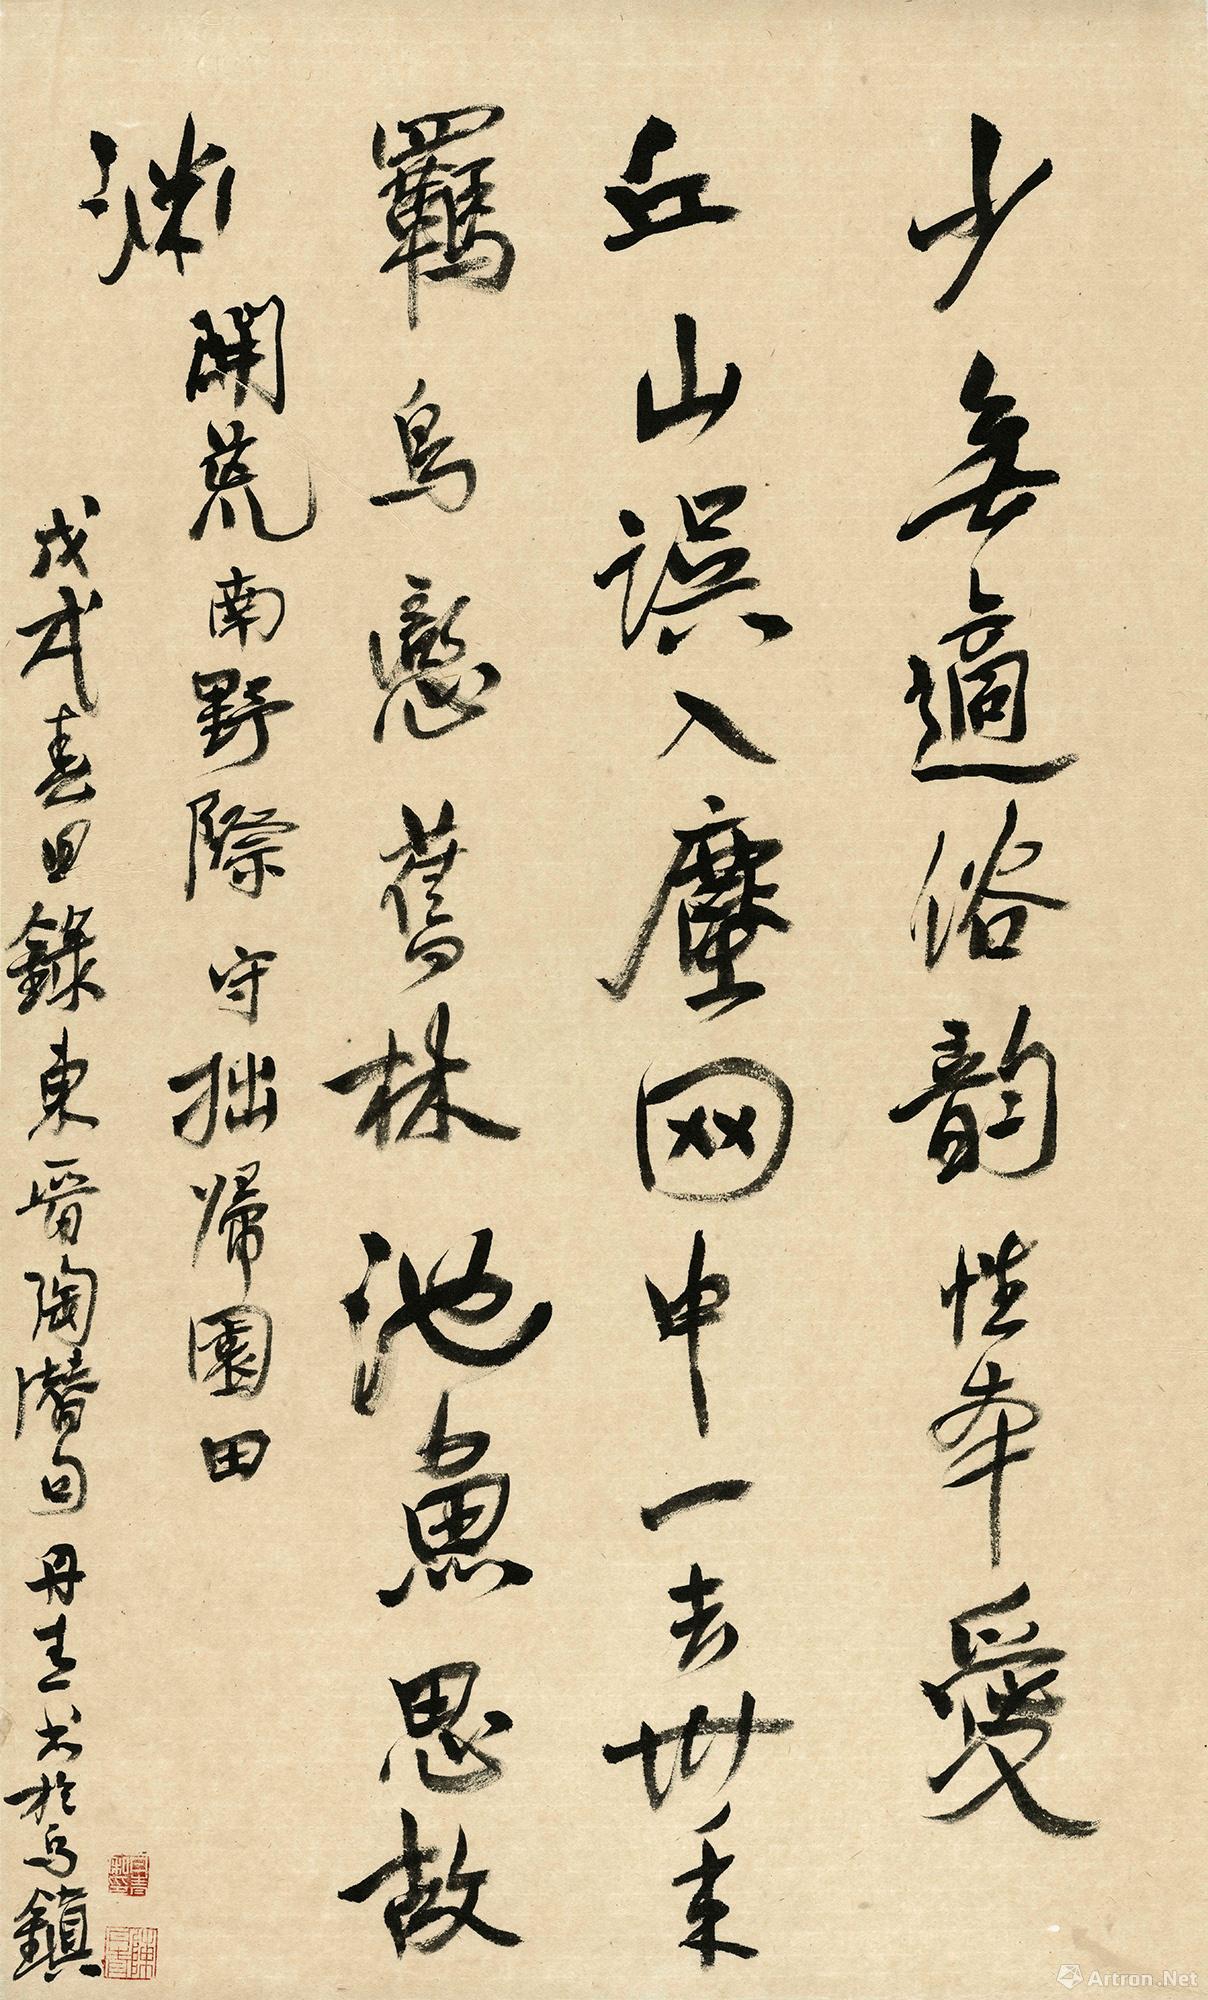 少無適俗韵性本愛
丘山误入塵网中一去卅年
羈鳥戀舊林池魚思故
渊
開荒南野際守拙歸園田
戊戌春日錄東晋陶潜句丹青书於乌鎮
Artron.Net